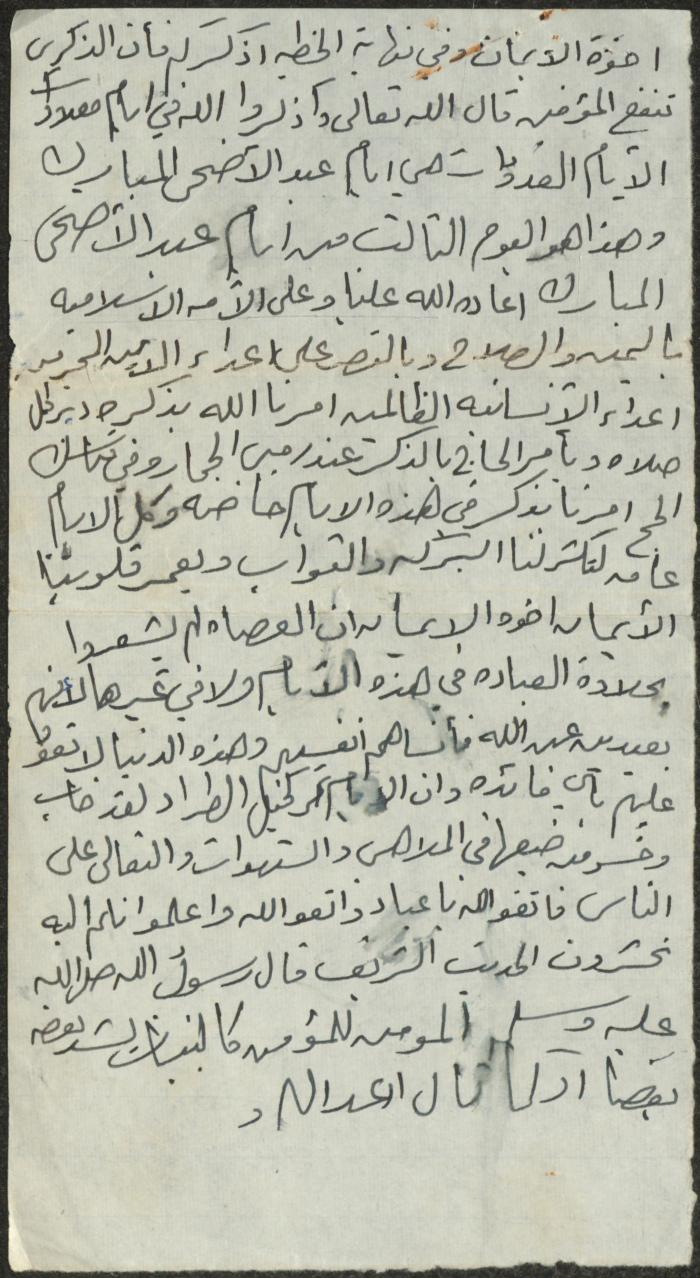 اخوة الايمان وفي نهاية الخطبه اذكركم فأن الذكرى
تنفع المؤمنين قال الله تعالى واذكروا الله في ايام معدودات
الأيام المعدودات هي ايام عيد الأضحى المبارك
وهذا هو اليوم الثالث من ايام عيد الأضحى
المبارك اعاده الله علينا وعلى الأمه الاسلاميه
باليمن والصلاح وبالنصر على اعداء الدين
اعداء الأنسانيه الظالمين امرنا الله بذكره دبر كل
صلاه ويأمر الحاج بالذكر عند رمي الجمار وفي مناسك
الحج امرنا بذكر في هذه الايام خاصه وكل الايام
عامه لتكثر لنا البركه والثواب ويعمر قلوبنا
الأيمان اخوه الايمان ان العصاه لم يشعروا
بحلاوة العباده في هذه الأيام ولا في غيرها لأنهم
بعيدين عن الله فأنساهم انفسهم وهذه الدنيا لا تعود
عليهم بأي فائده وان الايام تمر كخيل الطراد لقد خاب
وخسر من ضيعها في الملاهي والشهوات والتعالي على
الناس فاتقو الله يا عباد واتقو الله واعلموا انكم اليه
تحشرون الحديث الشريف قال رسول الله صلى الله
عليه وسلم المومن للمؤمن كالبنيان يشد بعضه
بعضا او كما قال